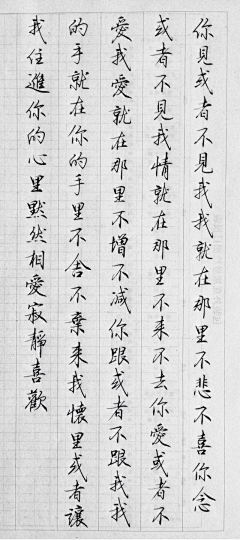 你見或者不見我我就在那里不悲不喜你念
或者不見我情就在那里不来不去你愛或者不
愛我愛就在那里不增不减你跟或者不跟我我
的手就在你的手里不舍不棄来我懷里或者讓
我住進你的心里默然相愛寂靜喜歡